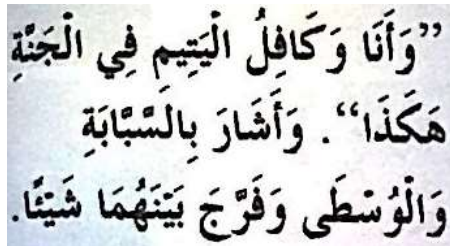 ”وَأَنَا وَكَافِلُ الْيَتِيمِ فِي الْجَنَّةِ
هَكَذَا“. وَأَشَارَ بِالسَّبَّابَةِ
وَالْوُسْطَى وَفَرَّجَ بَيْنَهُمَا شَيْئًا.